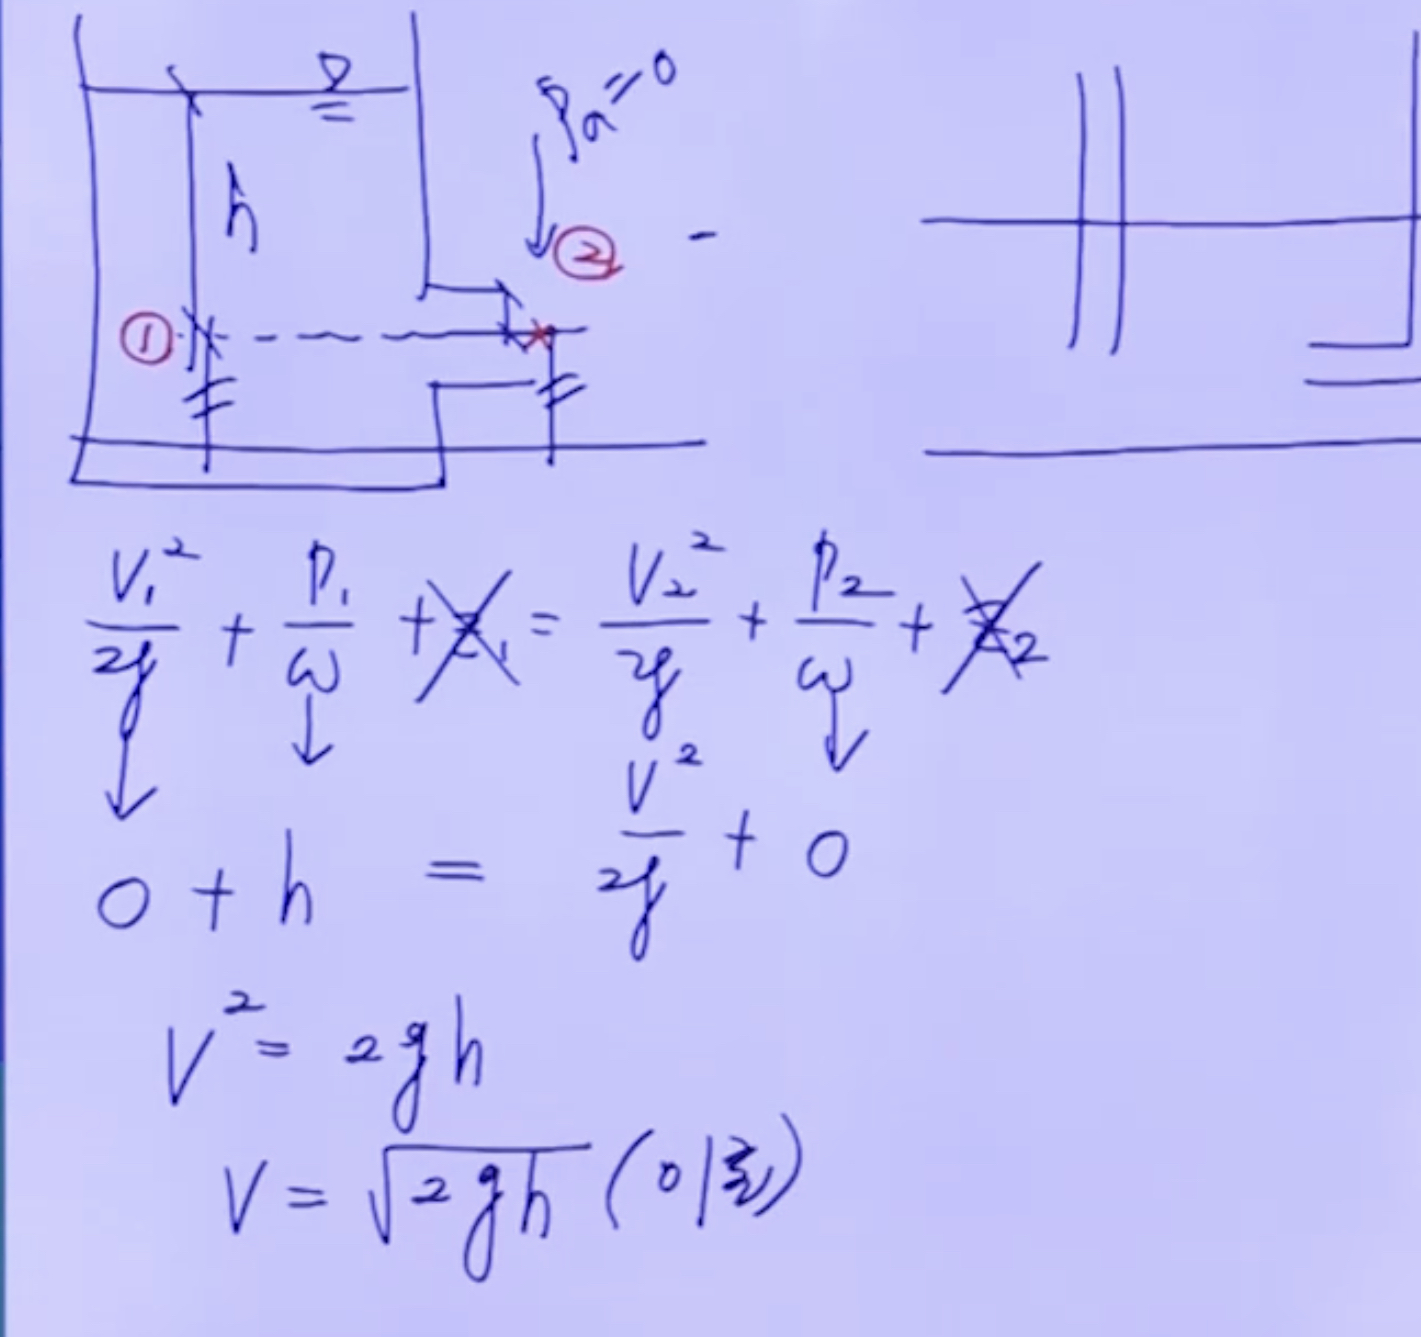 Pa=0
h
②
①
V₁²/2g + P₁/ω + Z₁ = V₂²/2g + P₂/ω + Z₂
0 + h = V²/2g + 0
V² = 2gh
V = √2gh (이론)